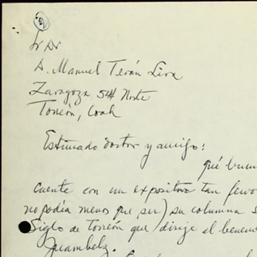 Sr Dr
D. Manuel Terán Lira
Zaragoza 544 Norte
Torreón, Coah
Estimado doctor y amigo:
qué buen
cuente con un expositor tan
no podía menos que ser) su columna
Siglo de torreón que dirige el